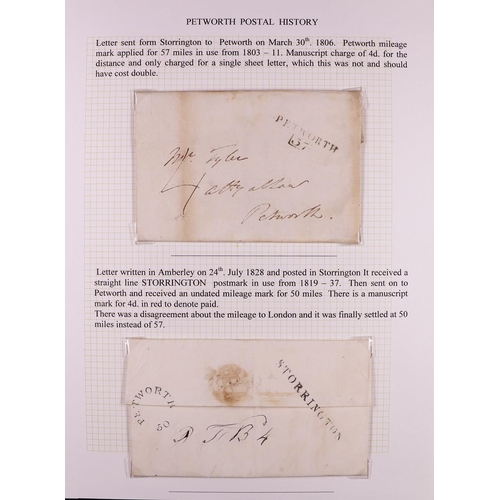 PETWORTH POSTAL HISTORY
Letter sent form Storrington to Petworth on March 30th. 1806. Petworth mileage
mark applied for 57 miles in use from 1803 – 11. Manuscript charge of 4d. for
the distance and only charged for a single sheet letter, which this was not and should
have cost double.
PETWORTH
57
Mr Tyler
4
Petworth.
Letter written in Amberley on 24th. July 1828 and posted in Storrington It received a
straight line STORRINGTON postmark in use from 1819 – 37. Then sent on to
Petworth and received an undated mileage mark for 50 miles There is a manuscript
mark for 4d. in red to denote paid.
There was a disagreement about the mileage to London and it was finally settled at 50
miles instead of 57.
PETWORTH
50
STORRINGTON